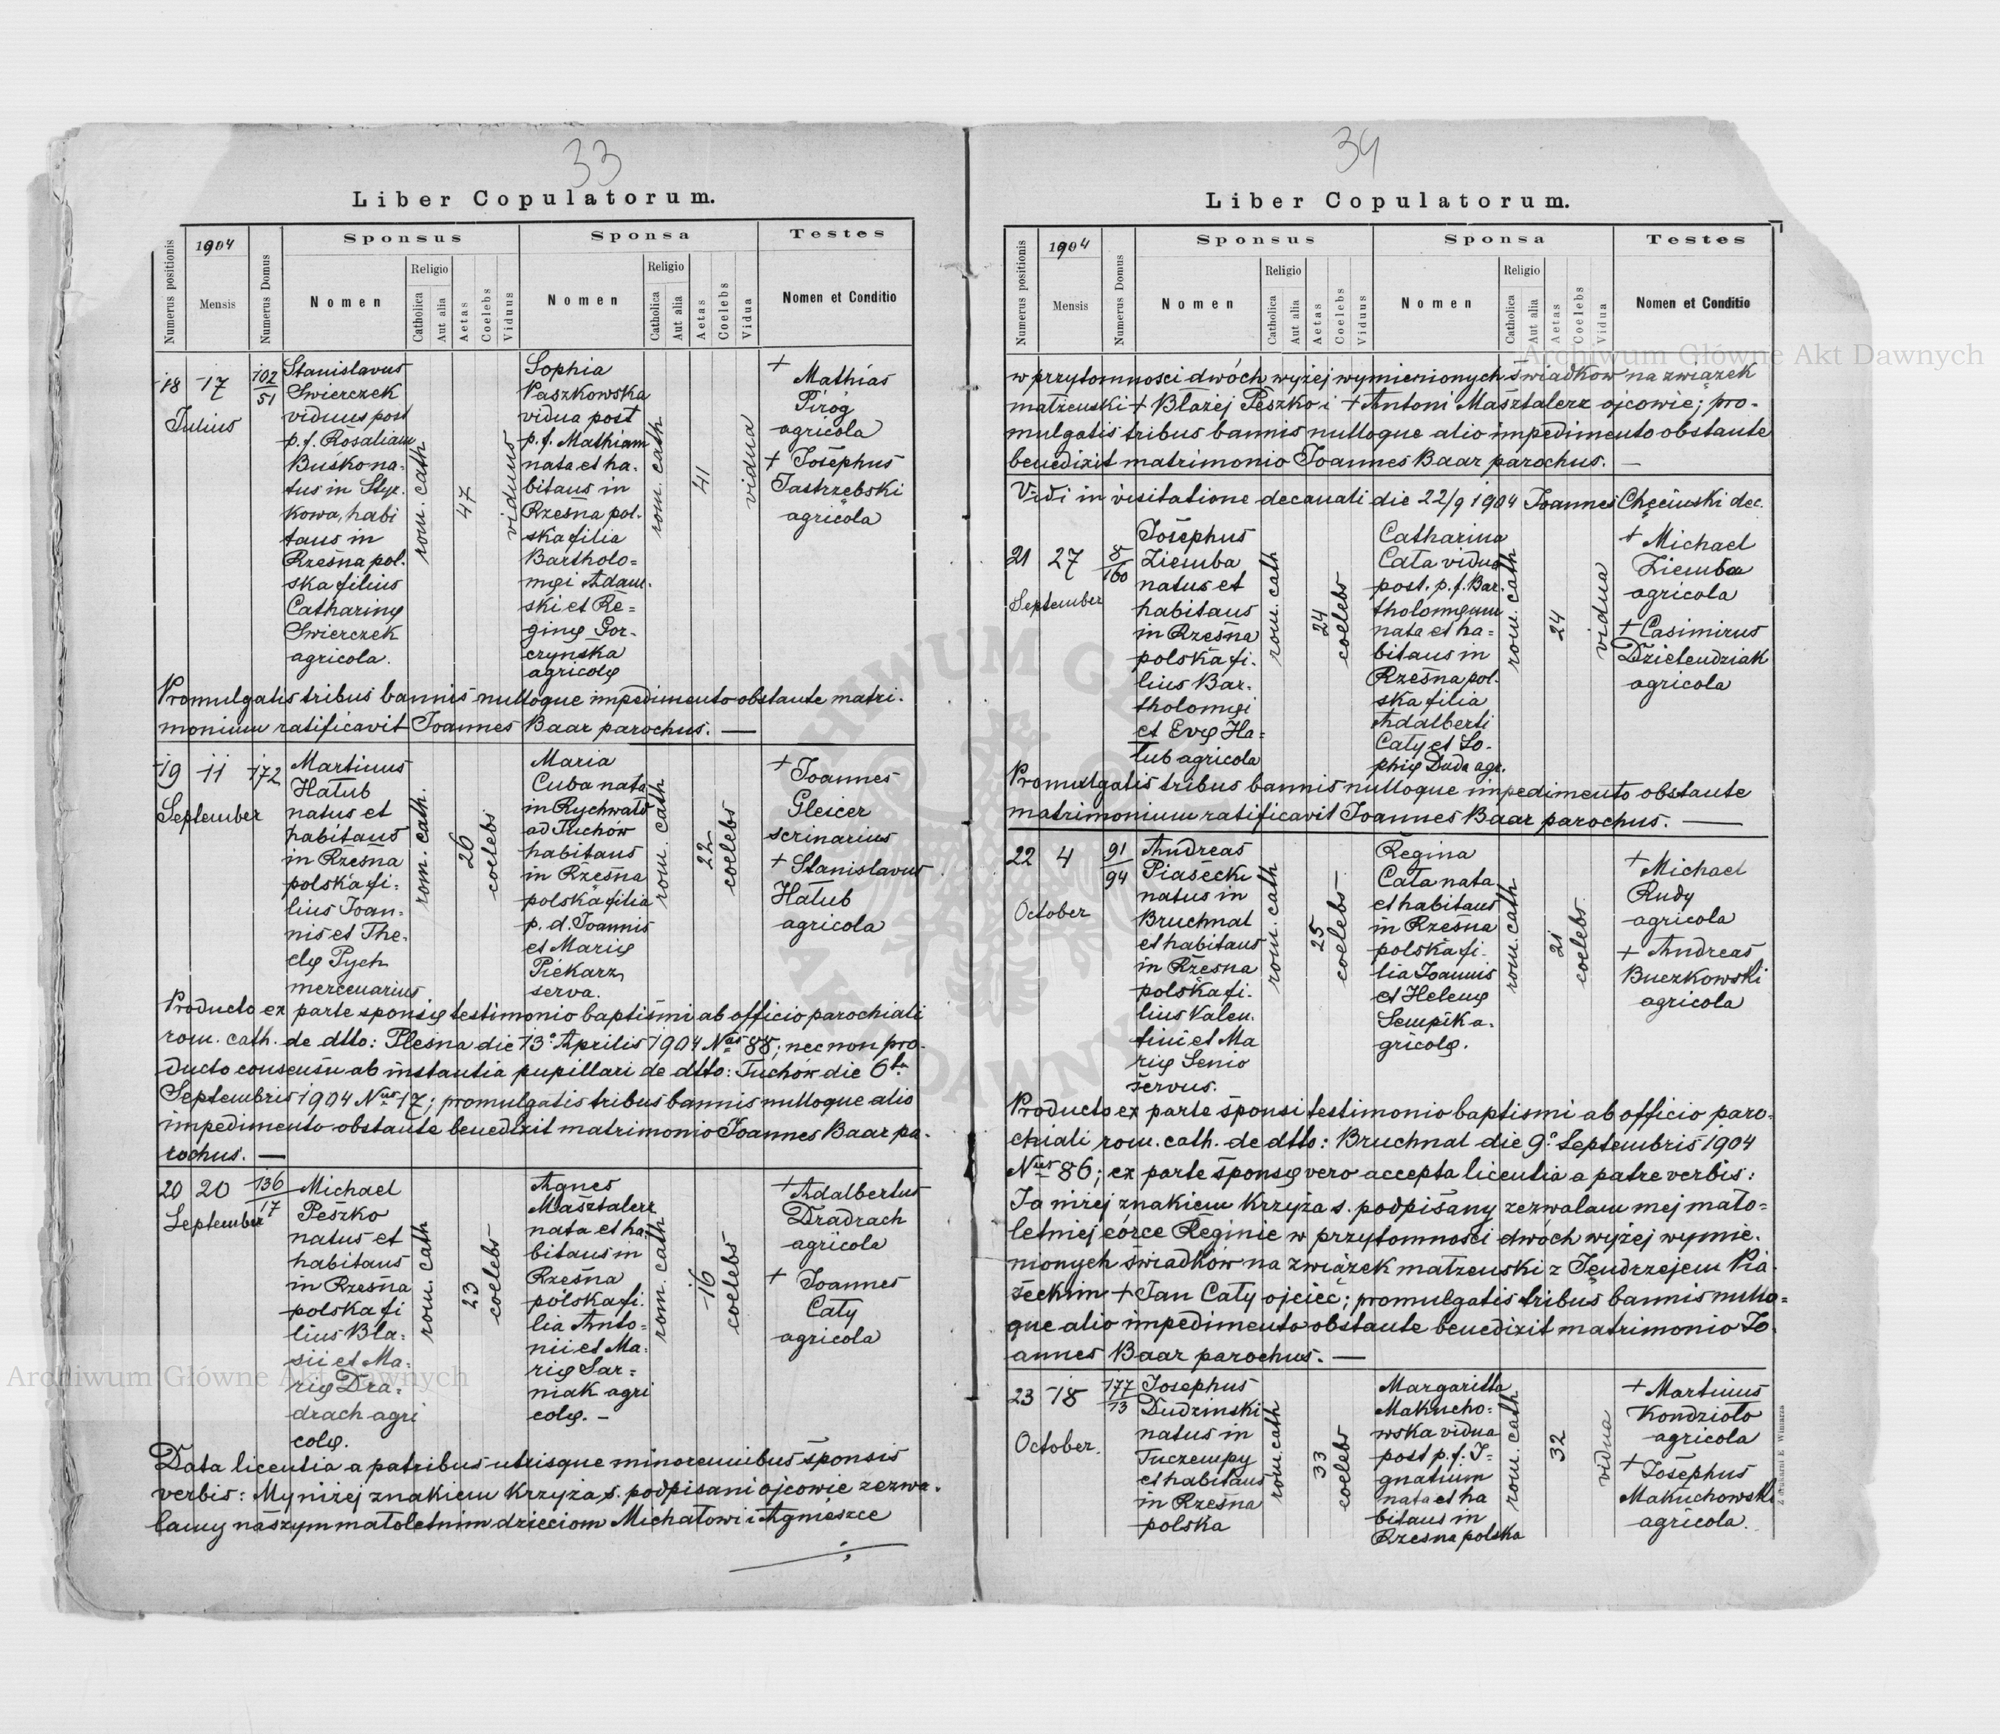 33
Liber Copulatorum.
Numerus positionis
1904
Mensis
Numerus Domus
Sponsus
Nomen
Religio
Catholica
Aut alia
Aetas
Coelebs
Viduus
Sponsa
Nomen
Religio
Catholica
Aut alia
Aetas
Coelebs
Vidua
Testes
Nomen et Conditio
18 17
Julius
102
51
Stanislavus
Swierczek
viduus post
p. f. Rosaliam
Buśko na-
tus in
kowa, habi
tans in
Rzesna pol-
ska filius
Catharinę
Swierczek
agricola.
rom. cath
47
viduus
Sophia
Paszkowska
vidua post
p. f. Mathiam
nata et ha-
bitans in
Rzesna pol-
ska filia
Bartholo=
męi Adam-
ski et Re=
ginę Gor-
czynska
agricolę
rom. cath
41
vidua
+
Mathias
Piróg
agricola
+ Josephus
Jastrzębski
agricola
Promulgatis tribus bannis nulloque impedimento obstante matri-
monium ratificavit Joannes Baar parochus. —
19 11
September
172
Martinus
Hałub
natus et
habitans
in Rzesna
polska fi-
lius Joan-
nis et The-
clę Pych
mercenarius
rom. cath.
26
coelebs
Maria
Cuba nata
in Rychwałd
ad Tuchów
habitans
in Rzesna
polska filia
p. d. Joannis
et Marię
Piekarz
serva.
rom. cath
22
coelebs
+ Joannes
Gleicer
scrinarius
+ Stanislavus
Hałub
agricola
Producto ex parte sponsę testimonio baptismi ab officio parochiali
rom. cath. de dtto: Pleśna die 13º Aprilis 1904 Nus 88; nec non pro-
ducto consensu ab instantia pupillari de dtto: Tuchów die 6ta
Septembris 1904 Nus 17; promulgatis tribus bannis nulloque alio
impedimento obstante benedixit matrimonio Joannes Baar pa-
rochus. —
20 20
September
136
17
Michael
Peszko
natus et
habitans
in Rzesna
polska fi
lius Bla=
sii et Ma-
rię Dra=
drach agri
colę.
rom. cath
23
coelebs
Agnes
Masztalerz
nata et ha-
bitans in
Rzesna
polska fi-
lia Anto-
nii et Ma-
rię Sar=
niak agri
colę. —
rom. cath
16
coelebs
+ Adalbertus
Dradrach
agricola
+ Joannes
Cały
agricola
Data licentia a patribus utrisque minorennibus sponsis
verbis: My niżej znakiem Krzyża s. podpisani ojcowie zezwa-
lamy naszym małoletnim dzieciom Michałowi i Agnieszce
34
Liber Copulatorum.
Numerus positionis
1904
Mensis
Numerus Domus
Sponsus
Nomen
Religio
Catholica
Aut alia
Aetas
Coelebs
Viduus
Sponsa
Nomen
Religio
Catholica
Aut alia
Aetas
Coelebs
Vidua
Testes
Nomen et Conditio
w przytomności dwóch wyżej wymienionych świadków na związek
małżeński + Błażej Peszko i + Antoni Masztalerz ojcowie; pro-
mulgatis tribus bannis nulloque alio impedimento obstante
benedixit matrimonio Joannes Baar parochus. —
Vidi in visitatione decanali die 22/9 1904 Joannes Chęciński dec.
21 27
September
8
160
Josephus
Ziemba
natus et
habitans
in Rzesna
polska fi-
lius Bar-
tholomęi
et Evę Ha=
łub agricola
rom. cath
24
coelebs
Catharina
Cała vidua
post. p. f. Bar-
tholomęum
nata et ha=
bitans in
Rzesna pol-
ska filia
Adalberti
Cały et So-
phię Duda agr.
rom. cath
24
vidua
+ Michael
Ziemba
agricola
+ Casimirus
Dzielendziak
agricola
Promulgatis tribus bannis nulloque impedimento obstante
matrimonium ratificavit Joannes Baar parochus. —
22 4
October
91
94
Andreas
Piasecki
natus in
Bruchnal
et habitans
in Rzesna
polska fi-
lius Valen-
tini et Ma
rię Senio
servus.
rom. cath
25
coelebs
Regina
Cała nata
et habitans
in Rzesna
polska fi-
lia Joannis
et Helenę
Sempik a-
gricolę.
rom. cath
21
coelebs
+ Michael
Rudy
agricola
+ Andreas
Buczkowski
agricola
Producto ex parte sponsi testimonio baptismi ab officio paro-
chiali rom. cath. de dtto: Bruchnal die 9º Septembris 1904
Nus 86; ex parte sponsę vero accepta licentia a patre verbis:
Ja niżej znakiem Krzyża s. podpisany zezwalam mej mało=
letniej córce Reginie w przytomności dwóch wyżej wymie-
nionych świadków na związek małżeński z Jędrzejem Pia-
seckim + Jan Cały ojciec; promulgatis tribus bannis nullo=
que alio impedimento obstante benedixit matrimonio Jo-
annes Baar parochus. —
23 18
October.
177
13
Josephus
Dudzinski
natus in
Tuczempy
et habitans
in Rzesna
polska
rom. cath
33
coelebs
Margaritta
Makucho=
wska vidua
post p. f. J-
gnatium
nata et ha
bitans in
Rzesna polska
rom. cath
32
vidua
+ Martinus
Kondzioło
agricola
+ Josephus
Makuchowski
agricola.
Z drukarni E Winiarza
Archiwum Główne Akt Dawnych
Archiwum Główne Akt Dawnych